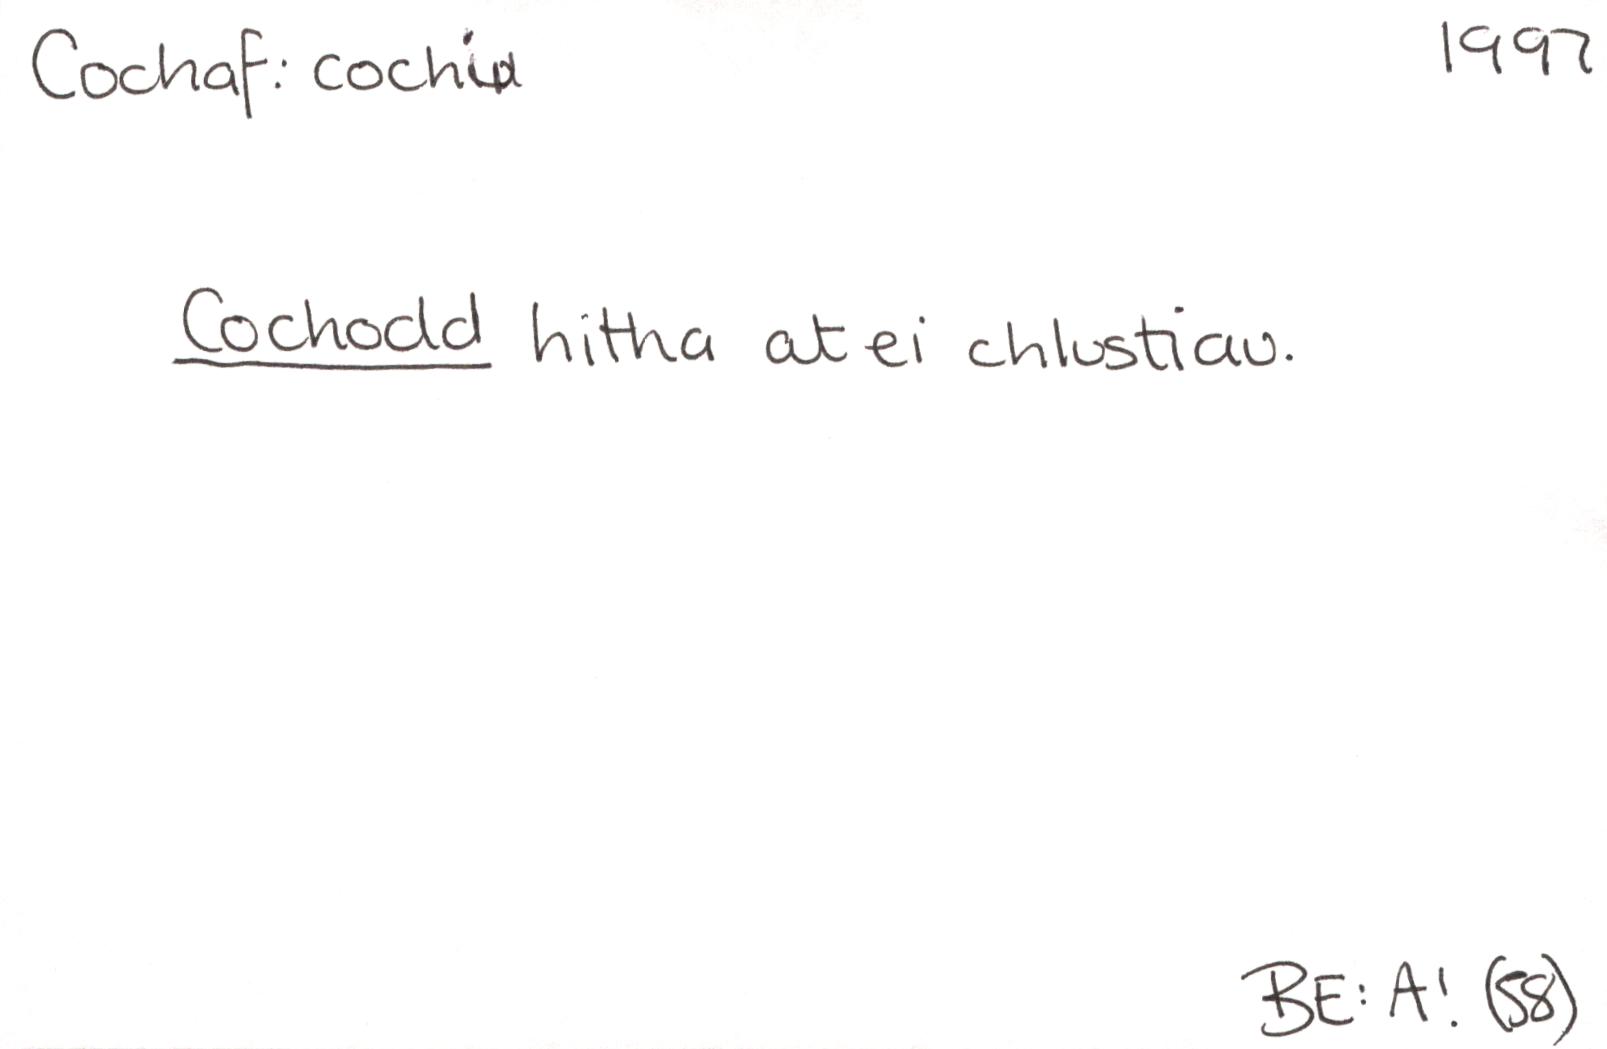 Cochaf: cochia 1997
Cochodd hitha at ei chlustiau.
BE: A! (58)